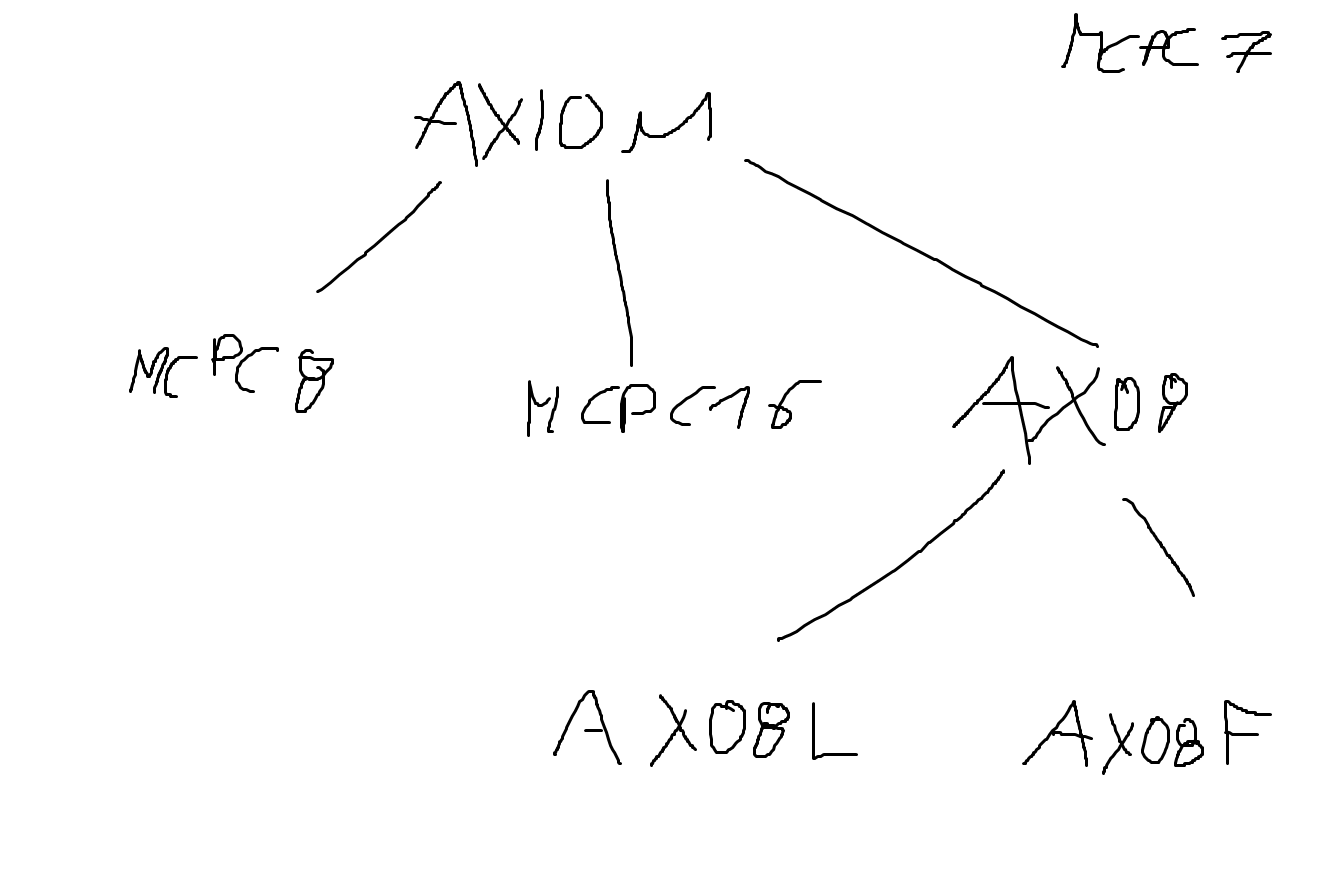 MCPC 7
AXIOM
MCPC8
MCPC16
AX08
AX08L
AX08F